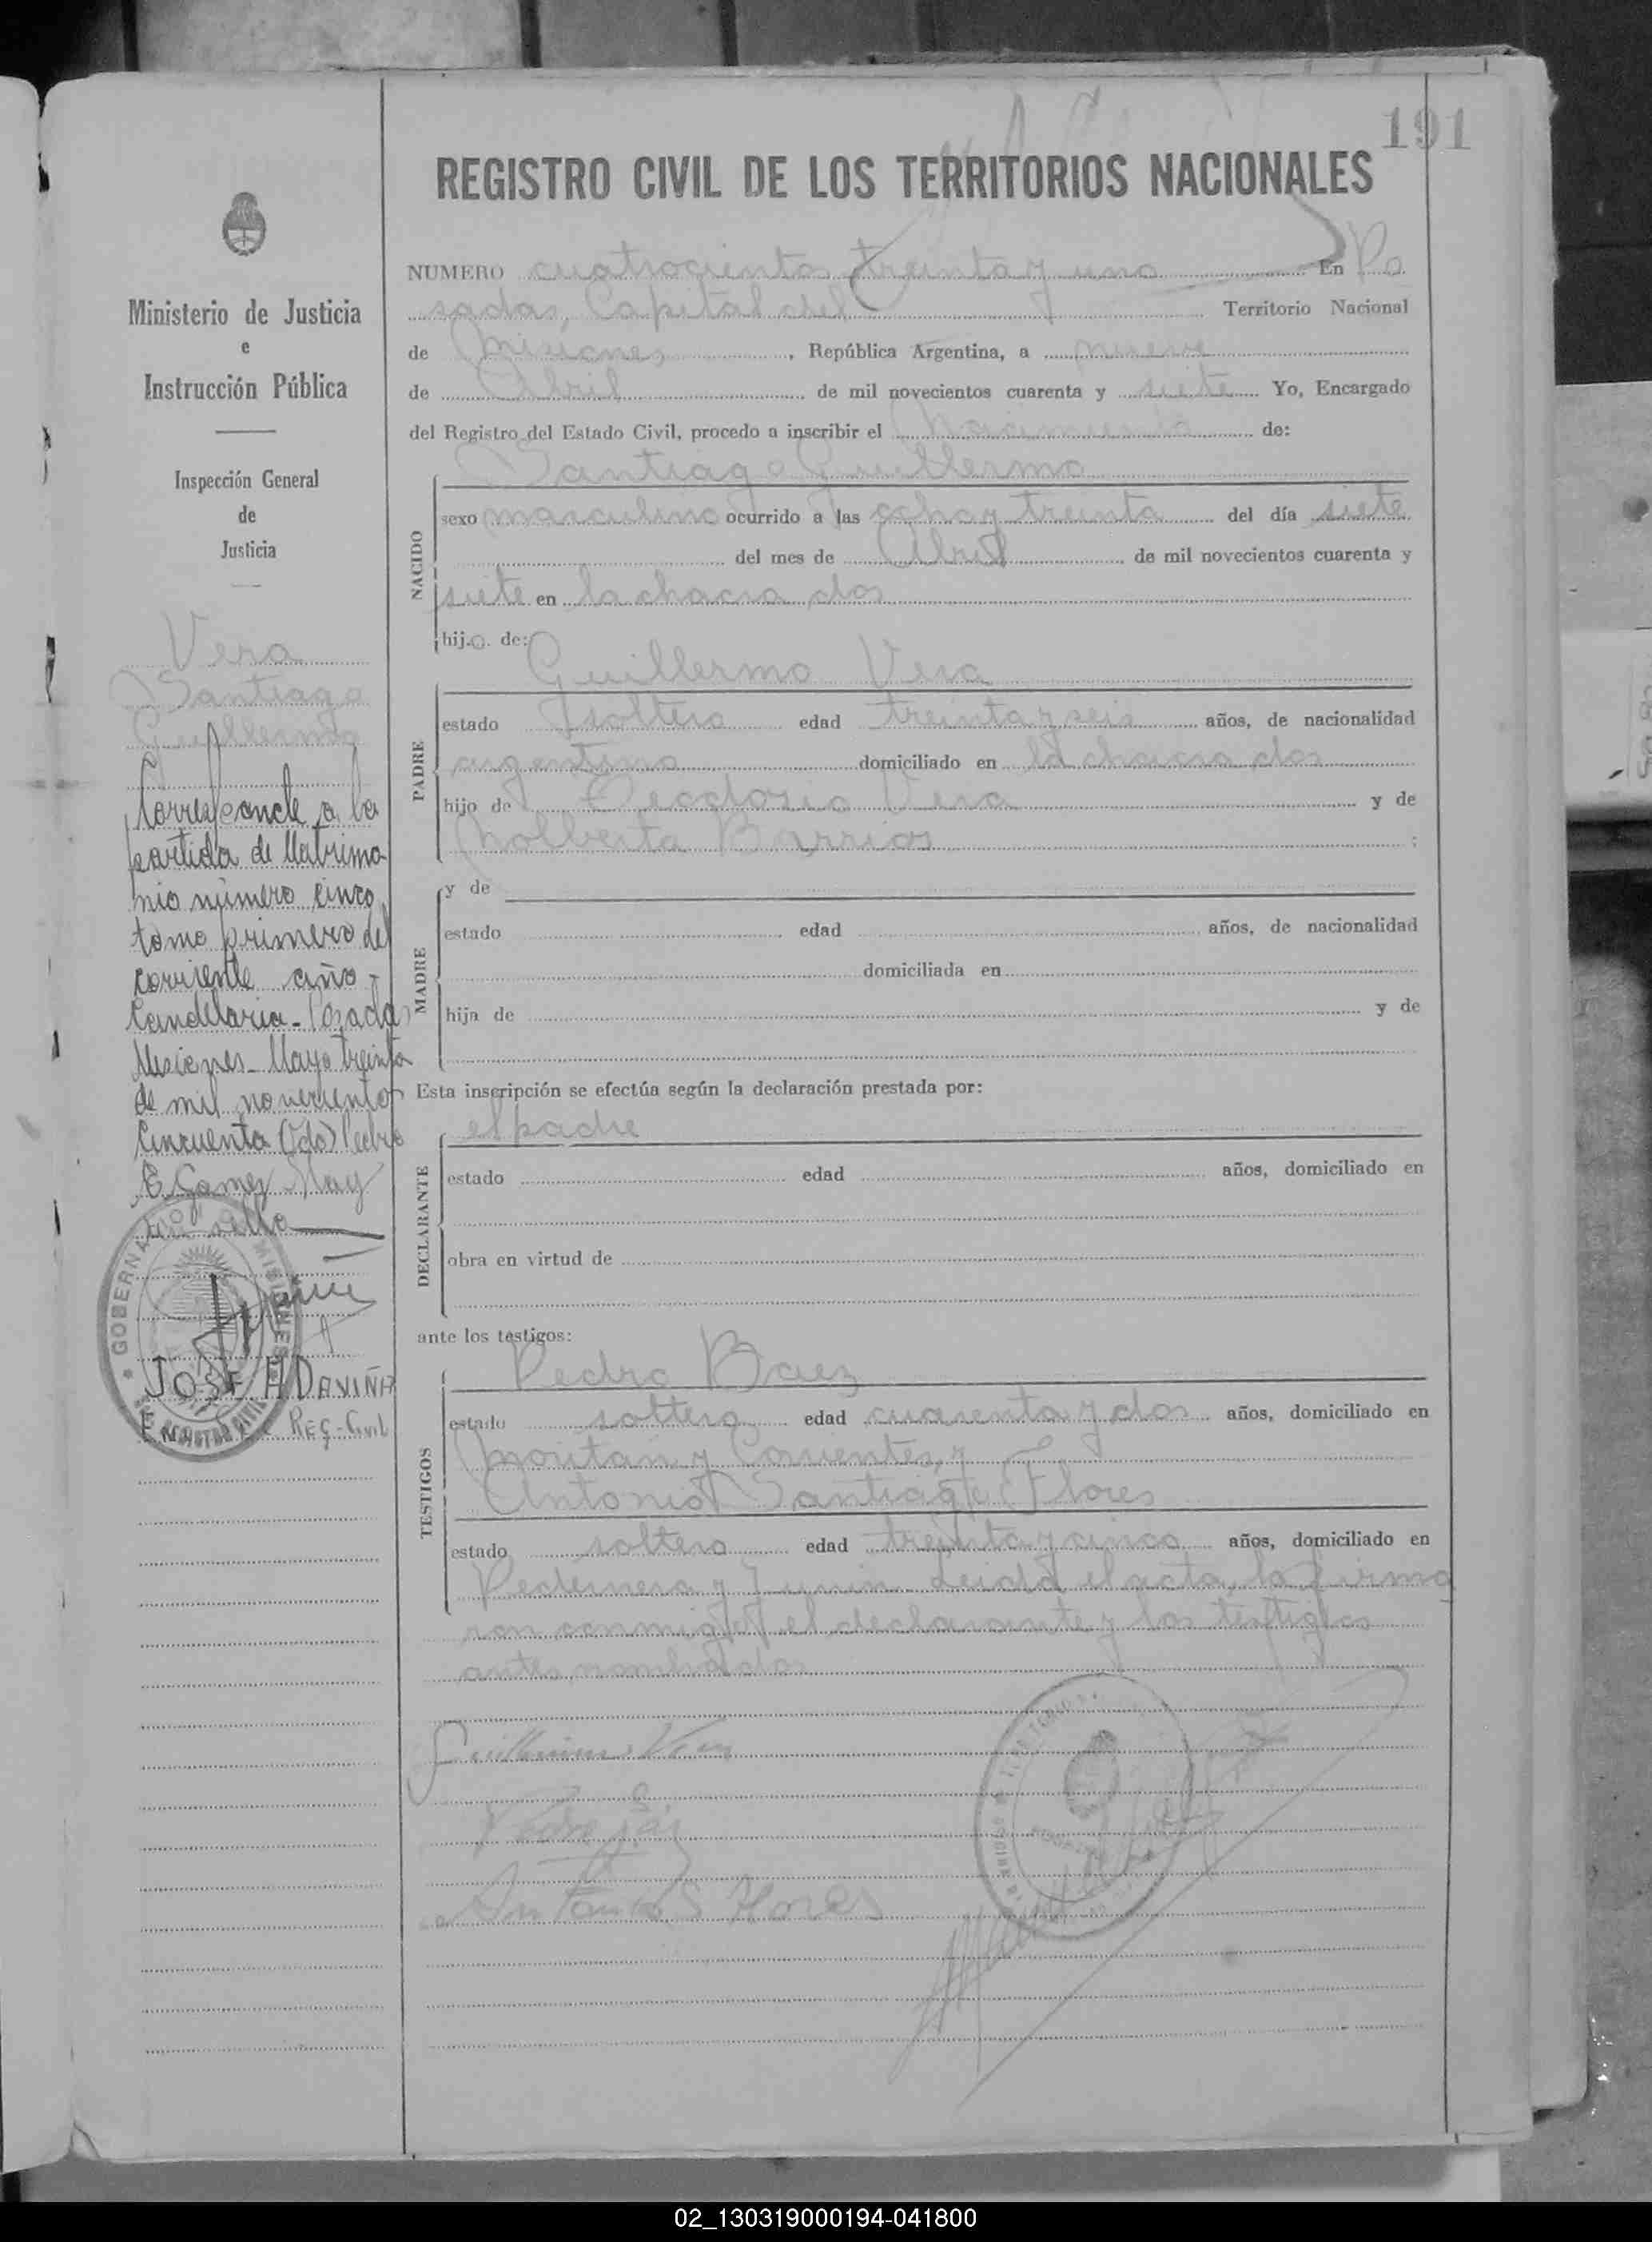 191
REGISTRO CIVIL DE LOS TERRITORIOS NACIONALES
Ministerio de Justicia
e
Instrucción Pública
Inspección General
de
Justicia
Vera
Santiago
Guillermo
Corresponde a la
partida de Matrimo
nio número cinco
tomo primero del
corriente año -
Candelaria - Posadas
Misiones - Mayo treinta
de mil novecientos
cincuenta (Fdo) Pedro
E. Gomez
sello
GOBERN MISIONES
REGISTRO CIVIL
JOSE A DAVIÑA
REG-CIVIL
NUMERO cuatrocientos treinta y uno En Po
sadas, Capital del Territorio Nacional
de Misiones, República Argentina, a nueve
de Abril de mil novecientos cuarenta y siete Yo, Encargado
del Registro del Estado Civil, procedo a inscribir el Nacimiento de:
NACIDO
Santiago Guillermo
sexo masculino ocurrido a las ocho y treinta del día siete
del mes de Abril de mil novecientos cuarenta y
siete en la chacra dos
hijo de:
PADRE
Guillermo Vera
estado soltero edad treinta y seis años, de nacionalidad
argentino domiciliado en la chacra dos
hijo de Teodoro Vera y de
Nolberta Barrios ;
MADRE
y de
estado edad años, de nacionalidad
domiciliada en
hija de y de
Esta inscripción se efectúa según la declaración prestada por:
DECLARANTE
el padre
estado edad años, domiciliado en
obra en virtud de
ante los testigos:
TESTIGOS
Pedro Baez
estado soltero edad cuarenta y dos años, domiciliado en
y Corrientes, y
Antonio Santiago Flores
estado soltero edad treinta y cinco años, domiciliado en
Pedernera y Junin. Leida el acta, la firma
ron conmigo el declarante y los testigos
antes nombrados
Guillermo Vera
Antonio S Flores
02_130319000194-041800